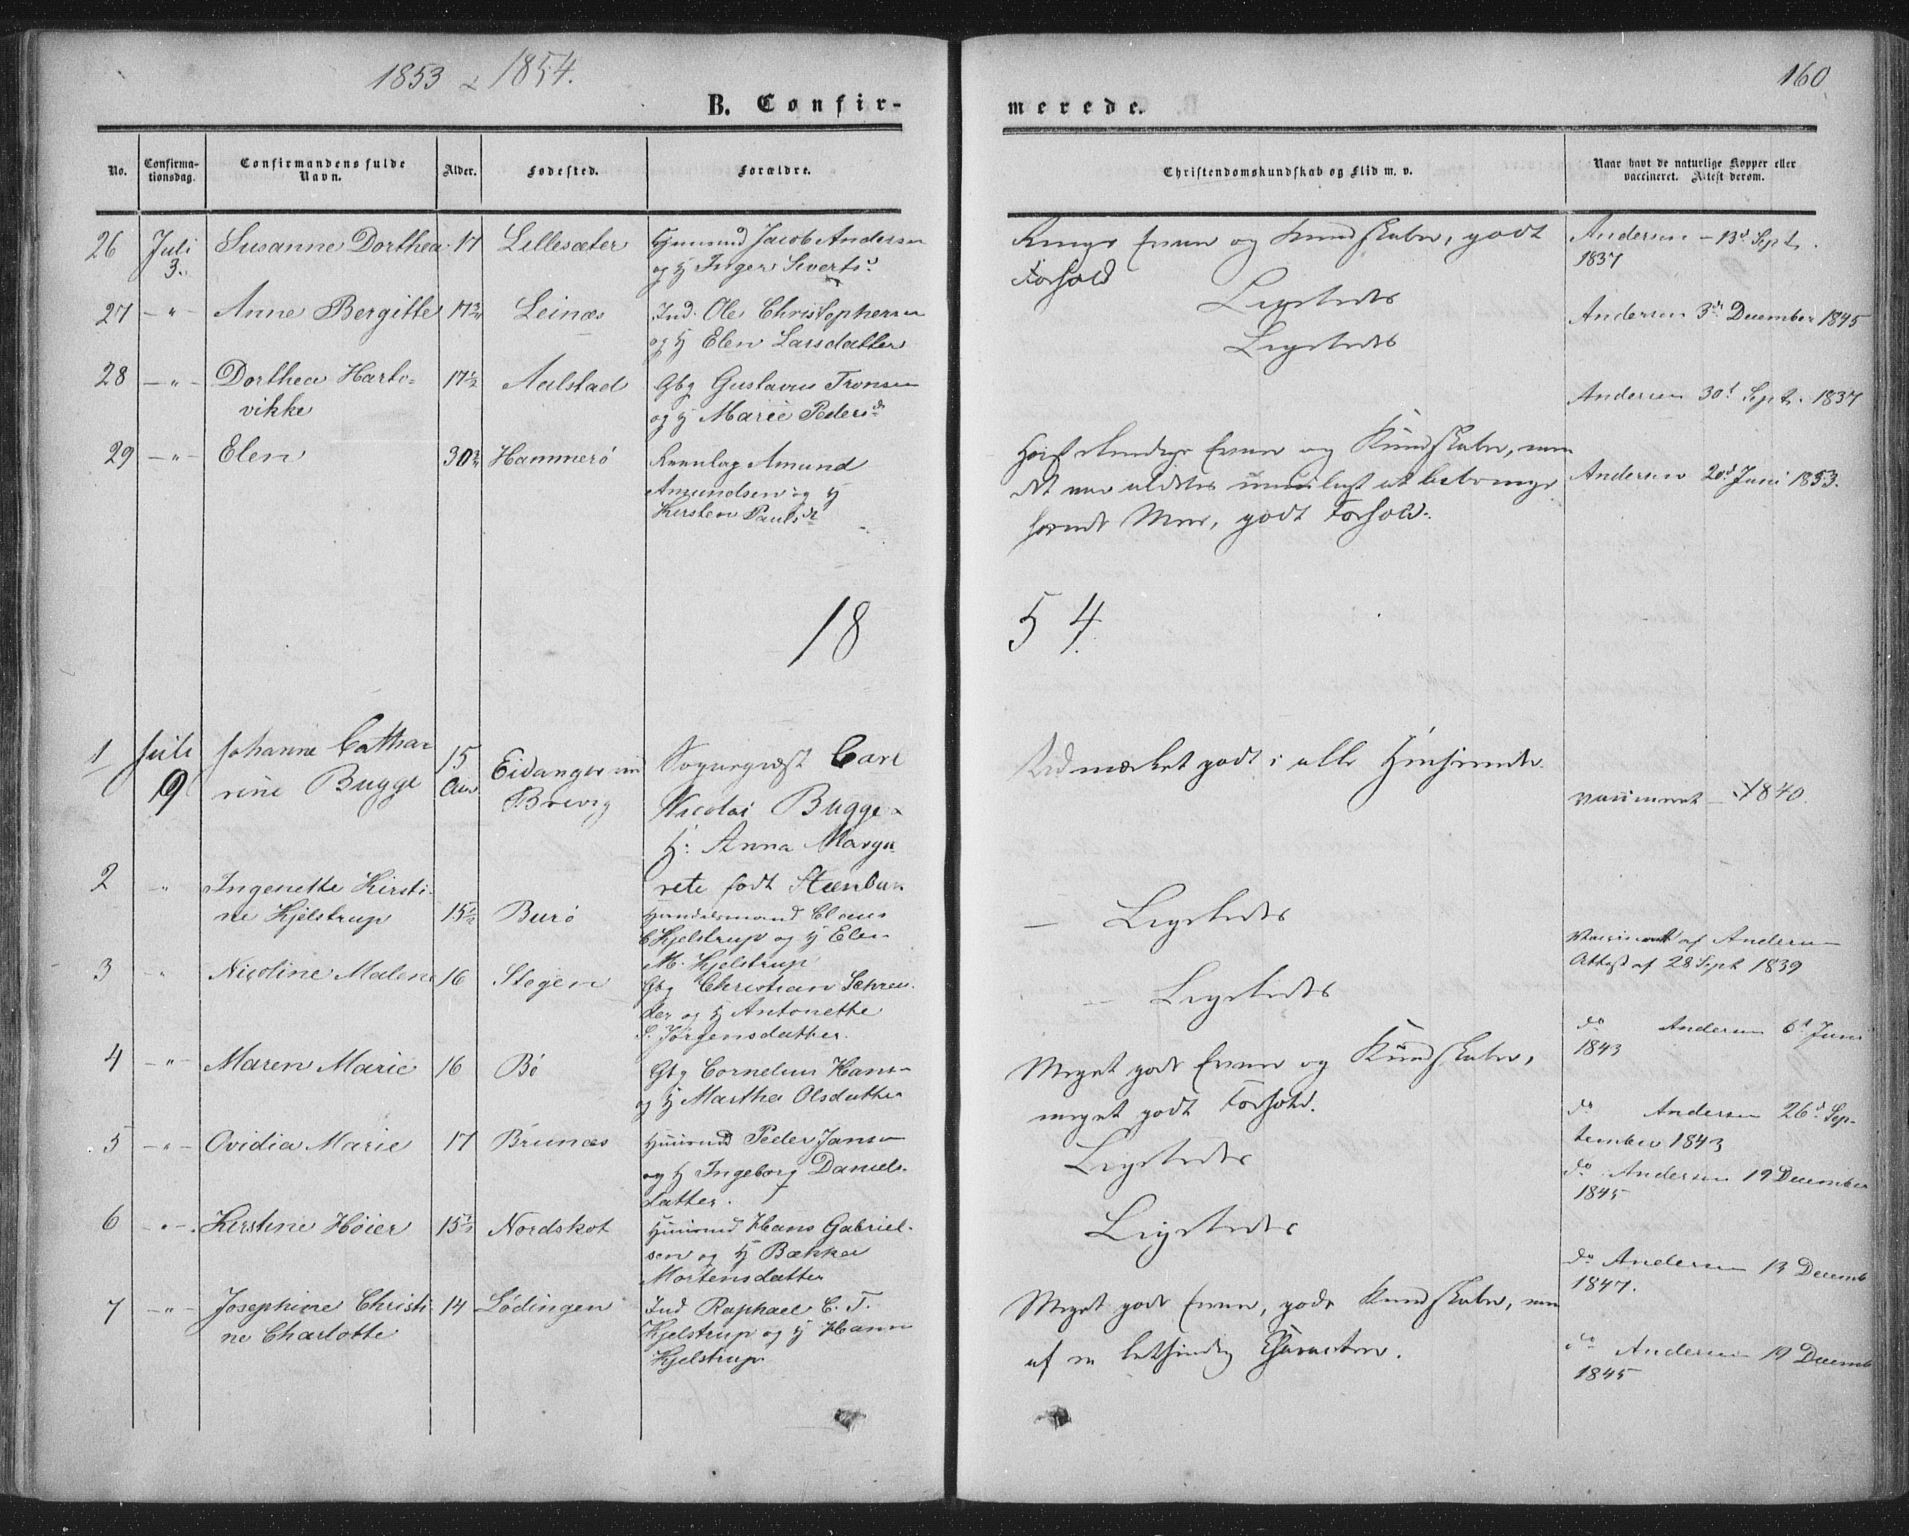 1853 & 1854.
160
B. Confir-
merede.
No.
Confirma-
tionsdag.
Confirmandens fulde
Navn.
Alder.
Fødested.
Forældre.
Christendomskundskab og Flid m. v.
Naar havt de naturlige Kopper eller
vaccineret. Attest derom.
26 Juli Susanne Dorthea 17 Lillesæter Huusmd Jacob Andersen
3. og H Inger Siverts d.
Ringe Evner og Kundskaber, godt
Forhold
Andersen - 13d Sept.
1837
27 -"- Anne Bergitte 17 3/4 Leinæs Ind. Ole Christophersen
og H Elen Larsdatter
Ligeledes
Andersen 3d December 1845
28 -"- Dorthea Harto- 17 1/2 Aalstad Gbg Gustavus Tronsen
vikke og H Marie Peders d.
Ligeledes
Andersen 30d Sept. 1837
29 -"- Elen 30 Hammerø Amund
Amundsen og H
Kirsten Pauls dr
Høist elendige Evner og Kundskaber, men
det var aldeles umuligt at bibringe
hende Mere, godt Forhold.
Andersen 20d Juni 1853.
18 54.
1 Juli Johanne Catha- 15 Eidanger Sognepræst Carl
9 rine Bugge Aar Brevig Nicolai Bugge &
H: Anna Marga-
rete født
Udmærket godt i alle Henseender.
vaccineret - 1840.
2 " Ingenette Kirsti-
ne Kjelstrup 15 1/2 Burø Handelsmand Claus
C Kjelstrup og H Elen
M. Kjelstrup
- Ligeledes
Vaccineret af Andersen
Attest af 28 Sept 1839
3 " Nicoline Malene 16 Stegen Gbg Christian Schrø-
der og H Antonette
S. Jørgensdatter.
- Ligeledes
do Andersen 6d Juni
1843
4 -"- Maren Marie 16 Bø Gbg Cornelius Hans-
og H Martha Olsdatter
Meget gode Evner og Kundskaber,
meget godt Forhold.
do Andersen 26d Sep-
tember 1843
5 -"- Ovidia Marie 17 Brunæs Huusmd Peder Jansen
og H Ingeborg Daniels-
datter.
Ligeledes
do Andersen 19 December
1845
6 -"- Kirstine Høier 15 1/2 Nordskot Huusmd Hans Gabriel-
sen og H Bækka
Mortensdatter
Ligeledes
do Andersen 13 Decemb
1847.
7 -"- Josephine Christi- 14 Lødingen Ind Raphael C. T.
ne Charlotte Kjelstrup og H Hanna
Kjelstrup
Meget gode Evner, gode Kundskaber, men
af en letsindig Characteer.
do Andersen 19 Decemb
1845